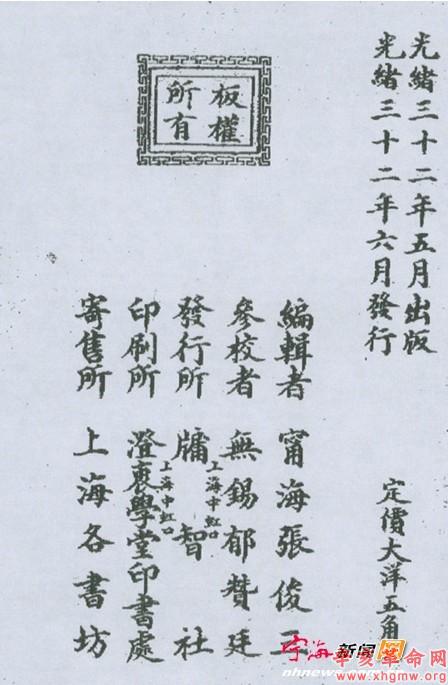 光緒三十二年五月出版
光緒三十二年六月發行
定價大洋五角
板權
所有
編輯者 甯海張俊
參校者 無錫郁贊廷
發行所 上海中虹口 牖智社
印刷所 上海中虹口 澄衷學堂印書處
寄售所 上海各書坊
宁海新闻网
nhnews
辛亥革命网
www.xhgmw.org